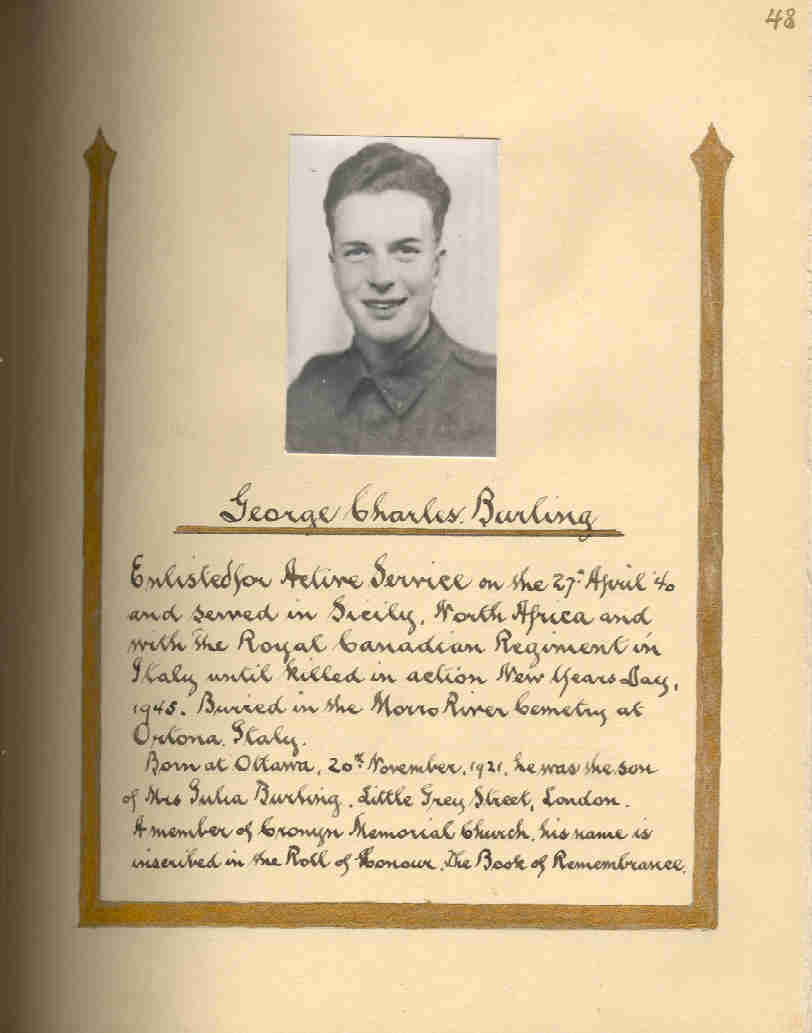 48
George Charles Burling
Enlisted for Active Service on the 27th April '40
and served in Sicily, North Africa and
with the Royal Canadian Regiment in
Italy until killed in action New Years Day,
1945. Buried in the Morro River Cemetry at
Ortona, Italy.
Born at Ottawa, 20th November, 1921, he was the son
of Mrs Julia Burling, Little Grey Street, London.
A member of Cronyn Memorial Church, his name is
inscribed in the Roll of Honour, The Book of Remembrance.